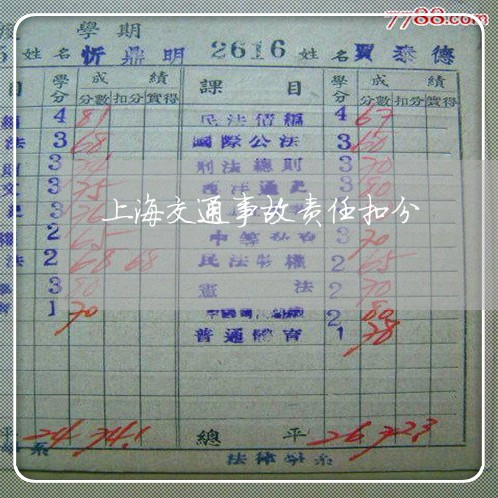 7788.com
學期
姓名 忻鼎明 2616 姓名 賈泰德
目 學分 成績 課目 學分 成績
分數 扣分 實得 分數 扣分 實得
4 81 民法債編 4 67
法 3 68 國際公法 3 60
3 刑法總則 3 70
3 75 3 80
上海交通事故责任扣分
2 65 3 70
法 2 68 68 民法物權 2 65
3 80 憲法 2 70
1 70 2 80
普通體育 1 78
平 24 74.1 總平 26 72.3
系 法律學系